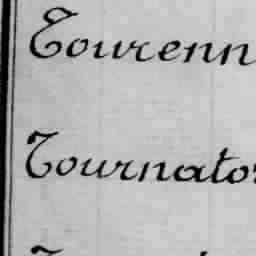 Tourenn
Tournator